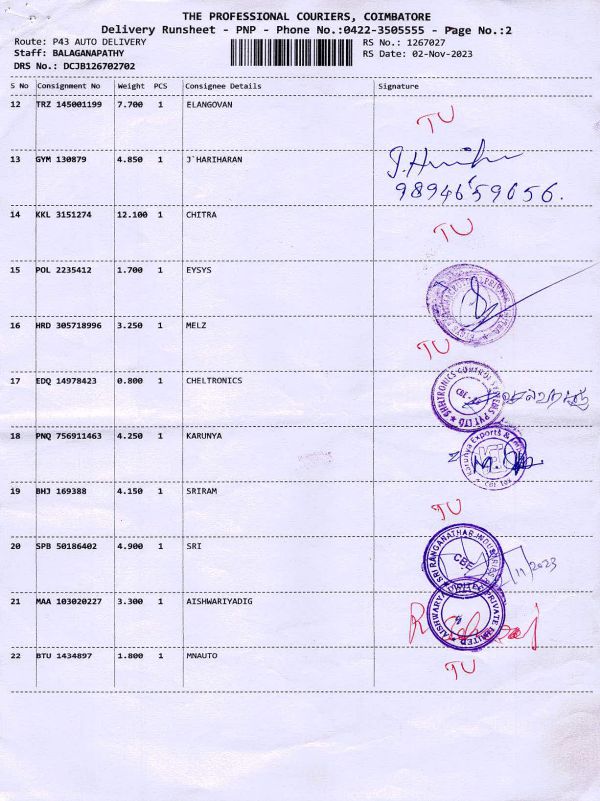 THE PROFESSIONAL COURIERS, COIMBATORE
Delivery Runsheet - PNP - Phone No.:0422-3505555 - Page No.:2
Route: P43 AUTO DELIVERY RS No.: 1267027
Staff: BALAGANAPATHY RS Date: 02-Nov-2023
DRS No.: DCJB126702702
S No Consignment No Weight PCS Consignee Details Signature
12 TRZ 145001199 7.700 1 ELANGOVAN
TU
13 GYM 130879 4.850 1 J`HARIHARAN
9894659056.
14 KKL 3151274 12.100 1 CHITRA
TU
15 POL 2235412 1.700 1 EYSYS
16 HRD 305718996 3.250 1 MELZ
TU
17 EDQ 14978423 0.800 1 CHELTRONICS
CBE
18 PNQ 756911463 4.250 1 KARUNYA
Karunya Exports &
19 BHJ 169388 4.150 1 SRIRAM
TU
20 SPB 50186402 4.900 1 SRI
SRI RANGANATHAR INDUSTRIES
CBE
11/2023
21 MAA 103020227 3.300 1 AISHWARIYADIG
PRIVATE LIMITED
22 BTU 1434897 1.800 1 MNAUTO
TU